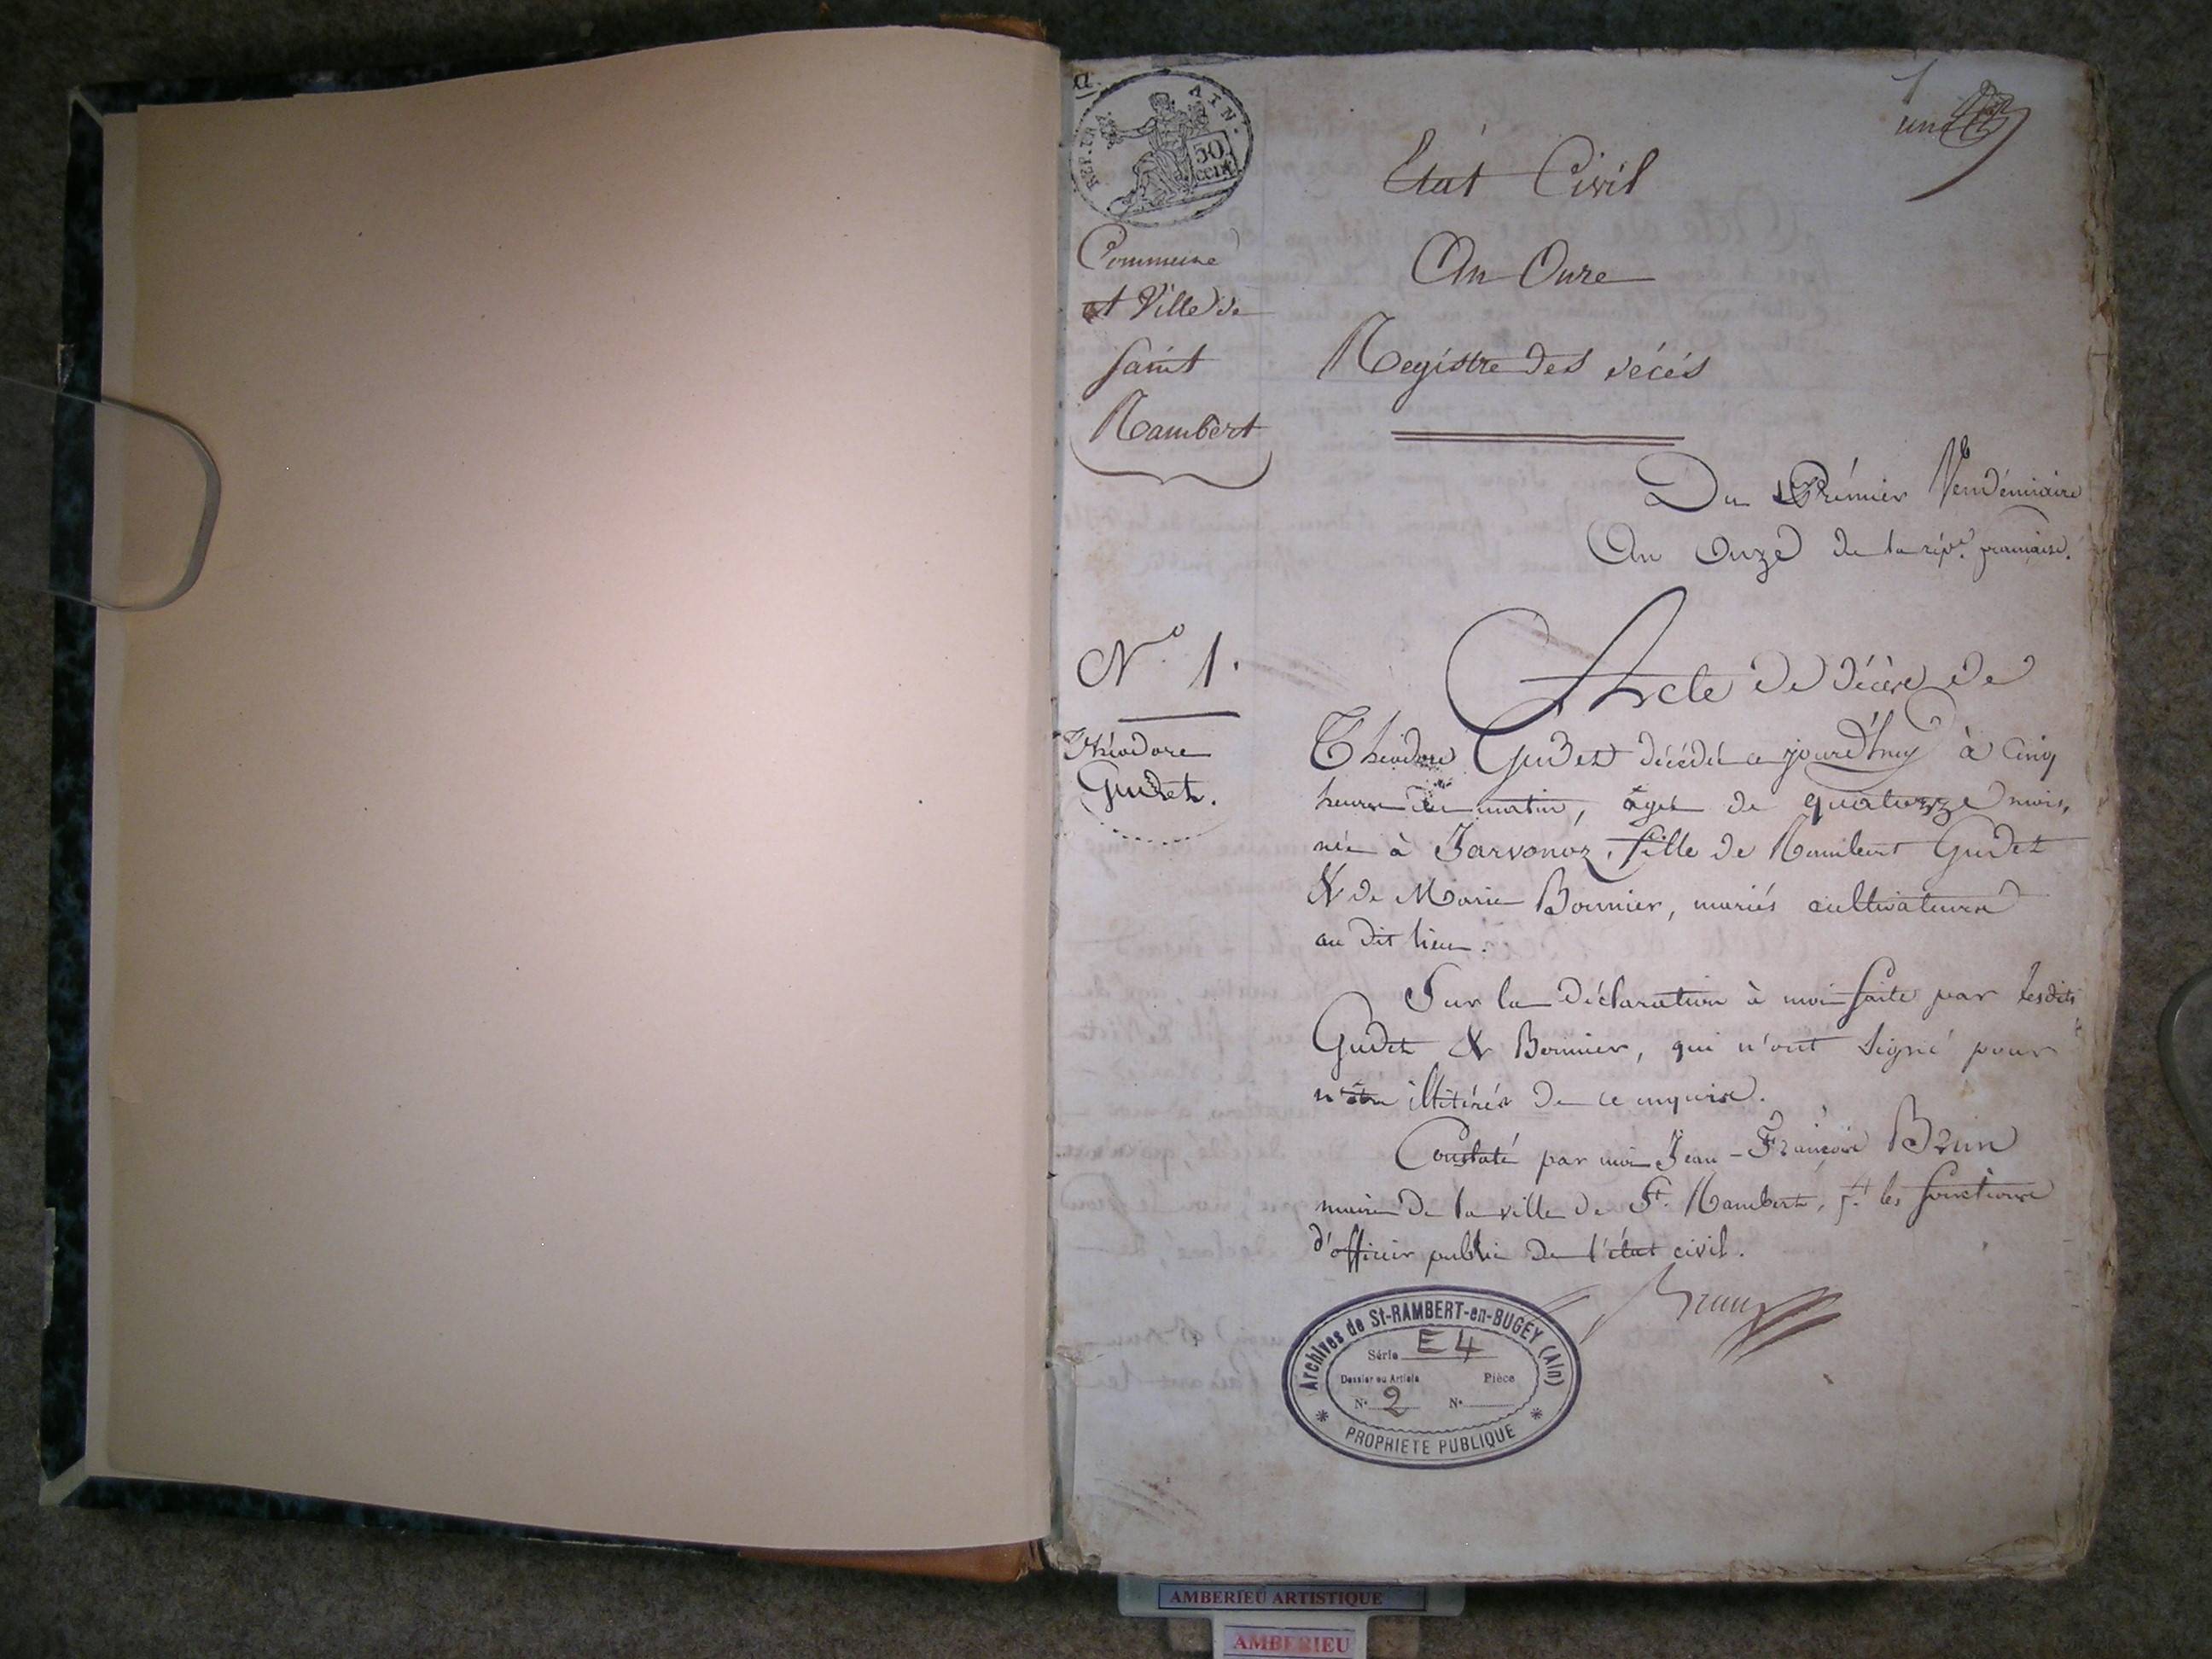 a.
REP. FRA. AIN.
50
cent.
1
une
Etat Civil
An Onze
Registre des décés
Commune
et Ville de
Saint
Rambert
Du Prémier Vendémiaire
An Onze de la répe. française.
N° 1.
Théodore
Gudet.
Acte de décès de
Théodore Gudet décédée ce jourd'huy à Cinq
heures du matin, âgée de quatorze mois,
née à Javornoz, fille de Rambert Gudet
& de Marie Bonnier, mariés cultivateurs
au dit lieu.
Sur la déclaration à moi faite par lesdits
Gudet & Bonnier, qui n'ont signé pour
être illitérés de ce enquis.
Constaté par moi Jean-François Brun
maire de la ville de St. Rambert, ft. les fonctions
d'officier public de l'état civil.
Brun
Archives de St-RAMBERT-en-BUGEY (Ain)
Série E 4
Dossier ou Article Pièce
N° 2 N°
PROPRIETE PUBLIQUE
AMBERIEU ARTISTIQUE
AMBERIEU